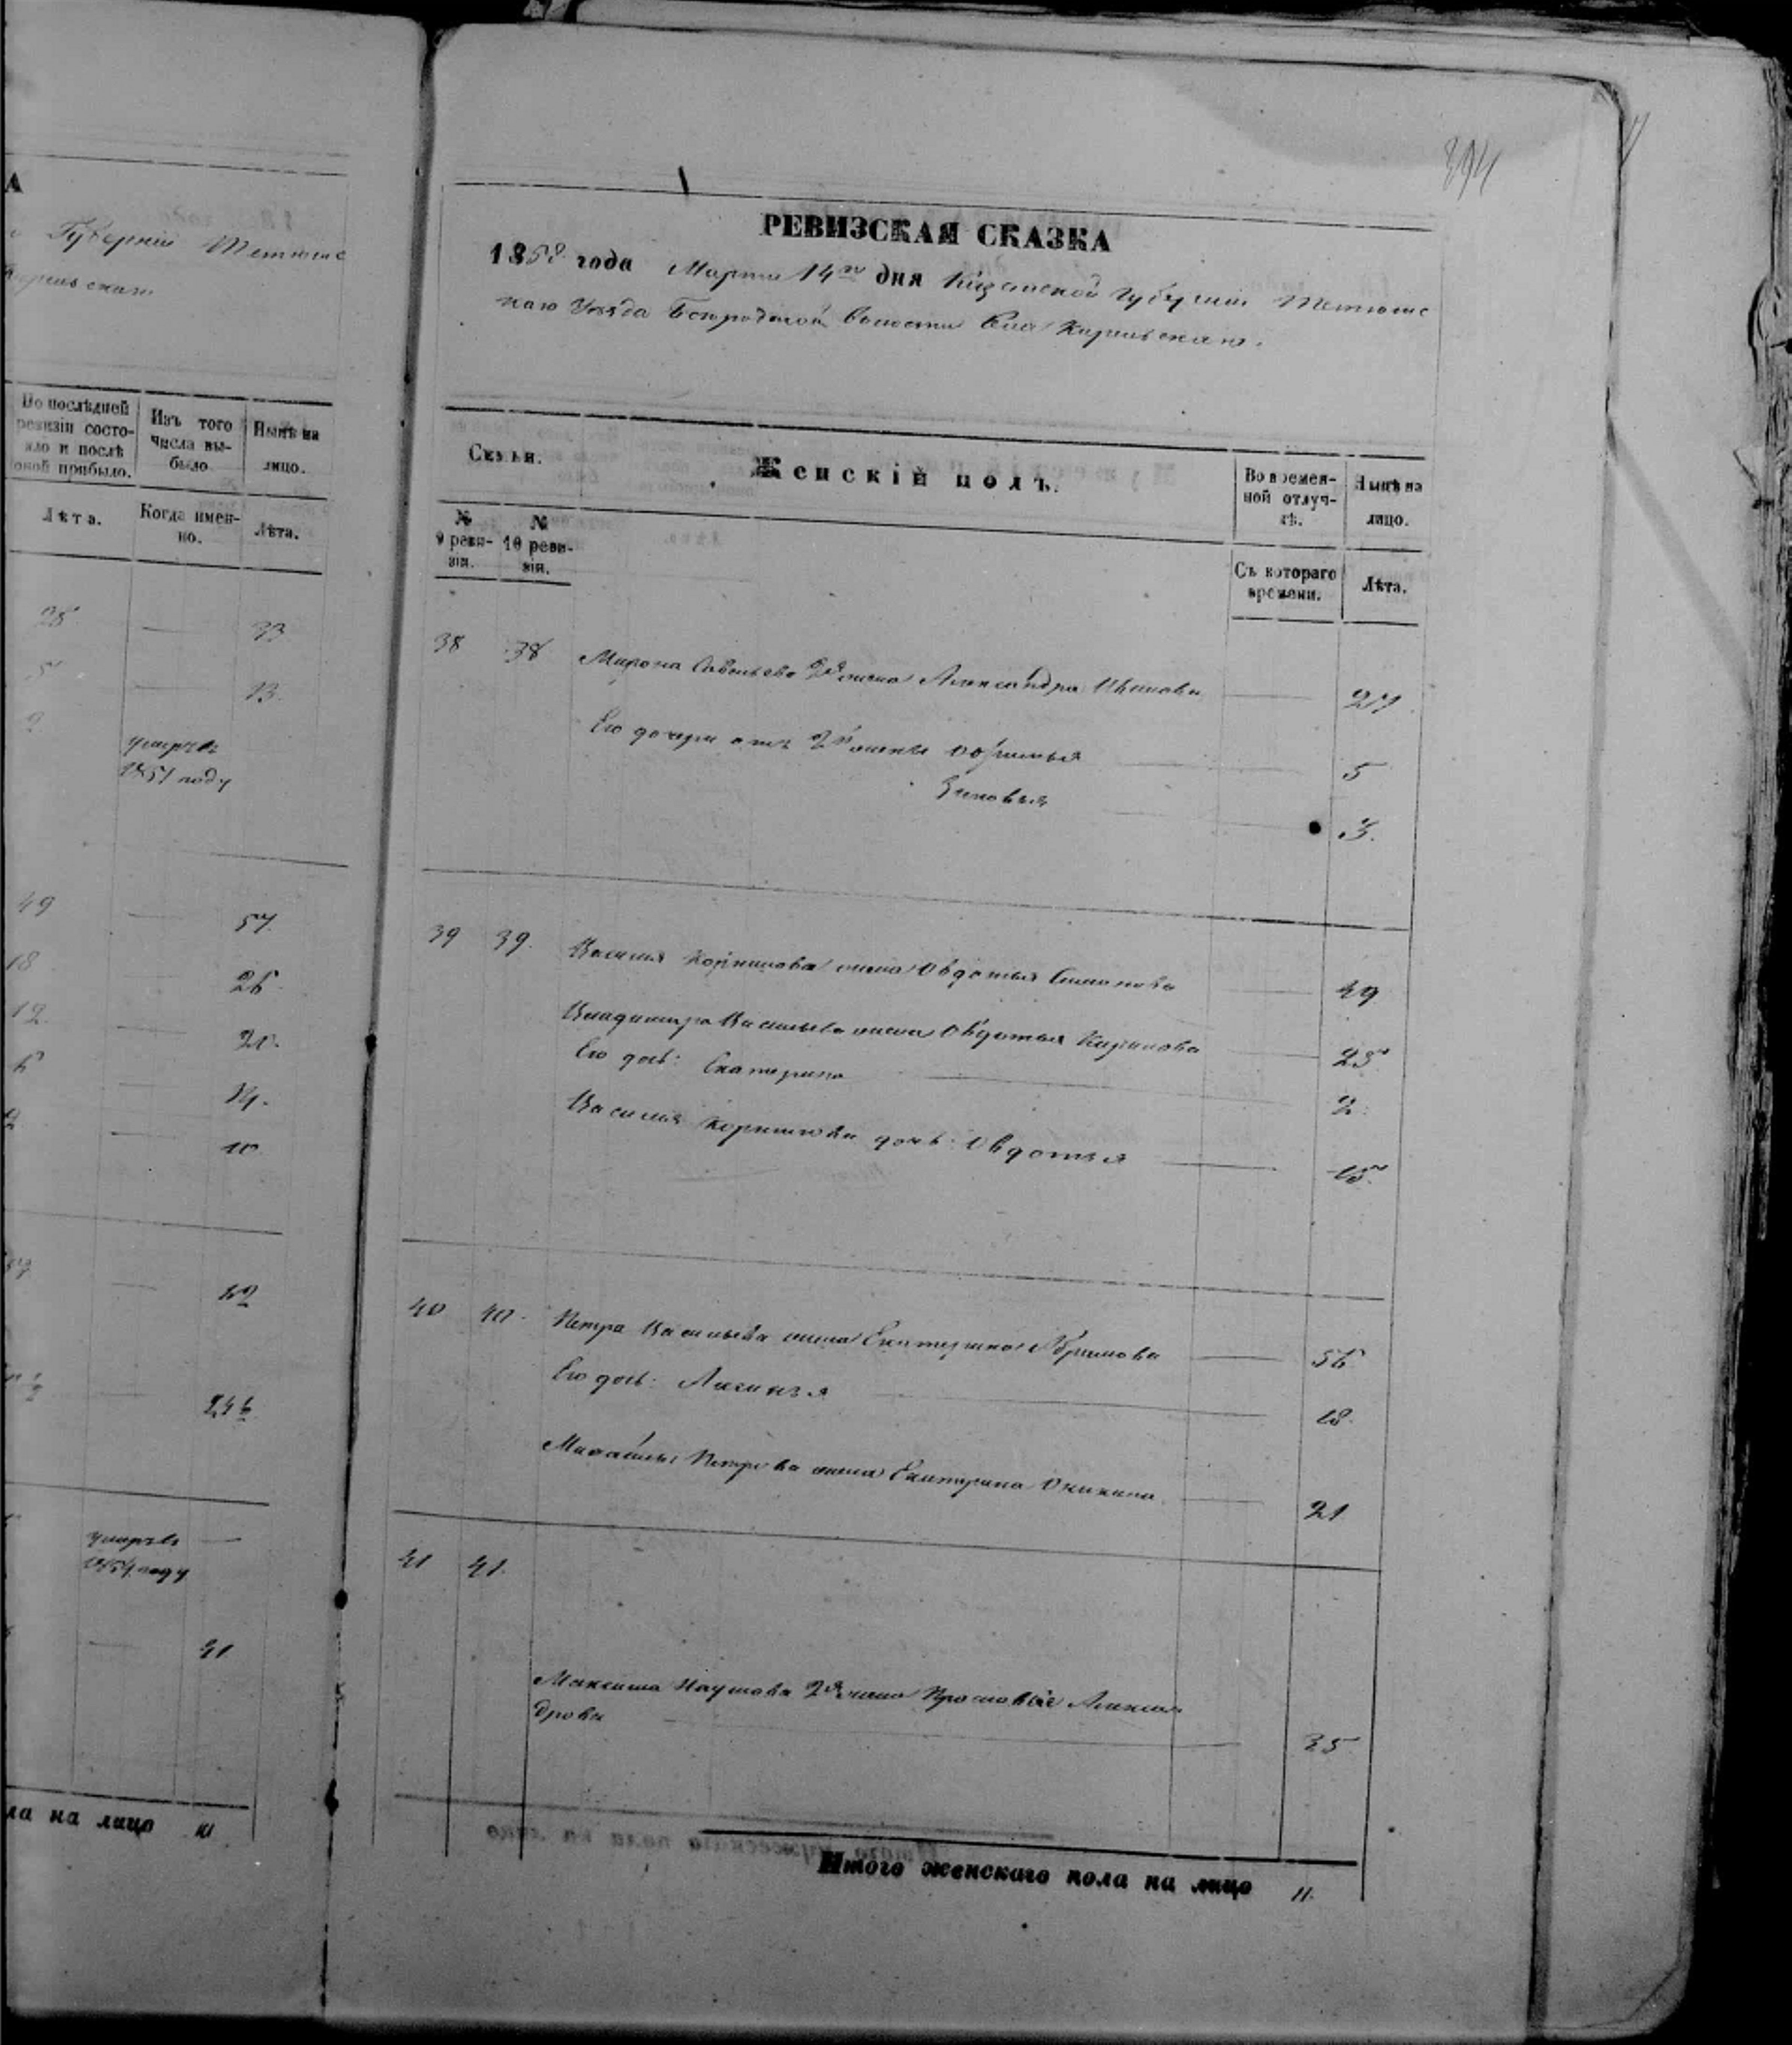 А
Губерніи Тетюшс
По послѣдней
ревизіи состо-
яло и послѣ
оной прибыло.
Изъ того
числа вы-
было.
Нынѣ на
лицо.
Лѣта.
Когда имен-
но.
Лѣта.
33
13.
умеръ въ
1857 году
49
57.
18
26
12
20.
14.
10
62
умеръ въ
1854 году
41
ла на лицо
394
РЕВИЗСКАЯ СКАЗКА
1858 года Марта 14го дня Казанской Губерніи Тетюшс
каго Уѣзда Богородской Волости Села Кирельскаго.
Семьи.
Женскій полъ.
Во времен-
ной отлуч-
кѣ.
Нынѣ на
лицо.
№ 9 реви-
зіи.
№ 10 реви-
зіи.
Съ котораго
времени.
Лѣта.
38 38 Мирона Савельева 2я жена Александра Иванова 27
Его дочери отъ 2й жены 5
Зиновья 3.
39 39. Василья Корнилова жена Овдотья Симонова 49
Владимира Васильева жена Овдотья Кирилова 25
Его дочь: Екатерина 2.
Василья Корнилова дочь: Овдотья 15.
40 40. Петра Васильева жена Екатерина Абрамова 56
Его дочь: Аксинья 18.
Михайлы Петрова жена Екатерина Оникина 21
41 41.
Максима Наумова 2я жена Просковье Алексан
дрова 35
Итого женскаго пола на лицо 11.